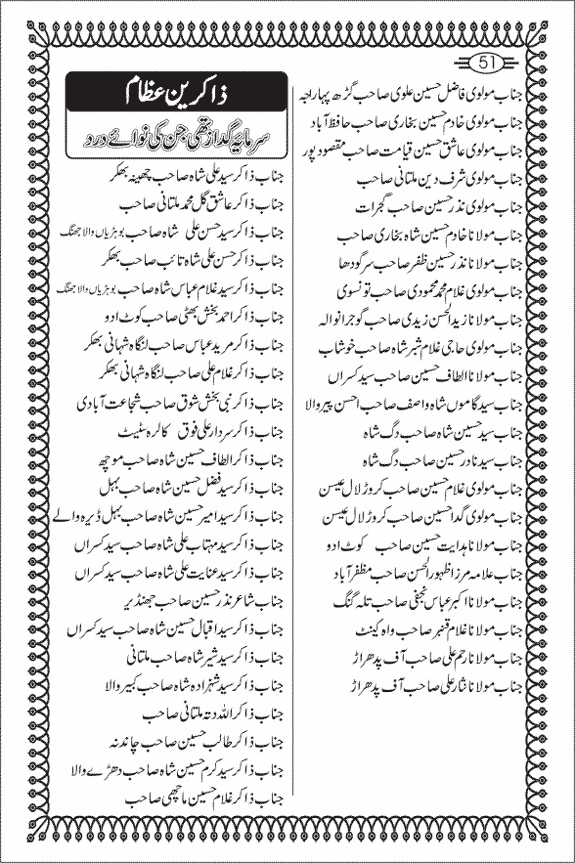 51
جناب مولوی فاضل حسین علوی صاحب گڑھ پہاراجہ
جناب مولوی خادم حسین بخاری صاحب حافظ آباد
جناب مولوی عاشق حسین قیامت صاحب مقصود پور
جناب مولوی شرف دین ملتانی صاحب
جناب مولوی نذر حسین صاحب گجرات
جناب مولانا خادم حسین شاہ بخاری صاحب
جناب مولانا نذر حسین ظفر صاحب سرگودھا
جناب مولوی غلام محمد محمودی صاحب تونسوی
جناب مولانا زید الحسن زیدی صاحب گوجرانوالہ
جناب مولوی حاجی غلام شبر شاہ صاحب خوشاب
جناب مولانا الطاف حسین صاحب سید کسراں
جناب سید گاموں شاہ واصف صاحب احسن پیر والا
جناب سید حسین شاہ صاحب دگ شاہ
جناب سید نادر حسین صاحب دگ شاہ
جناب مولوی غلام حسین صاحب کروڑ لال عیسن
جناب مولوی گدا حسین صاحب کروڑ لال عیسن
جناب مولانا ہدایت حسین صاحب کوٹ ادو
جناب علامہ مرزا ظہور الحسن صاحب مظفر آباد
جناب مولانا اکبر عباس نجفی صاحب تلہ گنگ
جناب مولانا غلام قنبر صاحب واہ کینٹ
جناب مولانا رحم علی صاحب آف پدھراڑ
جناب مولانا نثار علی صاحب آف پدھراڑ
ذاکرین عظام
سرمایۂ گداز تھی جن کی نوائے درد
جناب ذاکر سید علی شاہ صاحب چھینہ بھکر
جناب ذاکر عاشق گل محمد ملتانی صاحب
جناب ذاکر سید حسن علی شاہ صاحب بوہڑیاں والا جھنگ
جناب ذاکر حسن علی شاہ تائب صاحب بھکر
جناب ذاکر سید غلام عباس شاہ صاحب بوہڑیاں والا جھنگ
جناب ذاکر احمد بخش بھٹی صاحب کوٹ ادو
جناب ذاکر مرید عباس صاحب لنگاہ شہانی بھکر
جناب ذاکر غلام علی صاحب لنگاہ شہانی بھکر
جناب ذاکر نبی بخش شوق صاحب شجاعت آبادی
جناب ذاکر سردار علی فوق کالرہ سٹیٹ
جناب ذاکر الطاف حسین شاہ صاحب موچھ
جناب ذاکر سید فضل حسین شاہ صاحب بہل
جناب ذاکر سید امیر حسین شاہ صاحب بہل ڈیرہ والے
جناب ذاکر سید مہتاب علی شاہ صاحب سید کسراں
جناب ذاکر سید عنایت علی شاہ صاحب سید کسراں
جناب شاعر نذر حسین صاحب جھنڈیر
جناب ذاکر سید اقبال حسین شاہ صاحب سید کسراں
جناب ذاکر سید شبر شاہ صاحب ملتانی
جناب ذاکر سید شہزادہ شاہ صاحب کبیر والا
جناب ذاکر اللہ دتہ ملتانی صاحب
جناب ذاکر طالب حسین صاحب چاندنہ
جناب ذاکر سید کرم حسین شاہ صاحب دھڑے والا
جناب ذاکر غلام حسین ماچھی صاحب